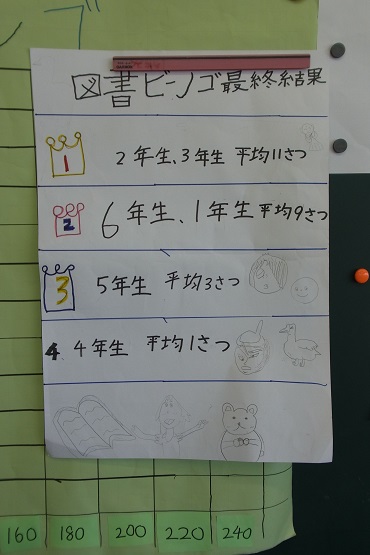 図書ビンゴ最終結果
1 2年生、3年生 平均11さつ
2 6年生、1年生 平均9さつ
3 5年生 平均3さつ
4 4年生 平均1さつ
160 180 200 220 240